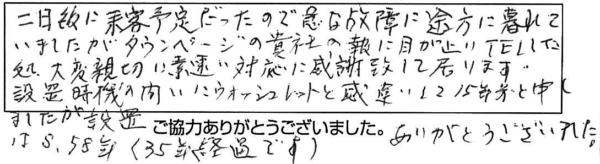 二日後に来客予定だったので急な故障に途方に暮れて
いましたがタウンページの貴社の報に目が止りTELした
処、大変親切に素速い対応に感謝致して居ります。
設置時機の問いにウォッシュレットと感違いして15年弱と申し
ましたが設置
ご協力ありがとうございました。
は S,58年 (35年経過です) ありがとうございました。